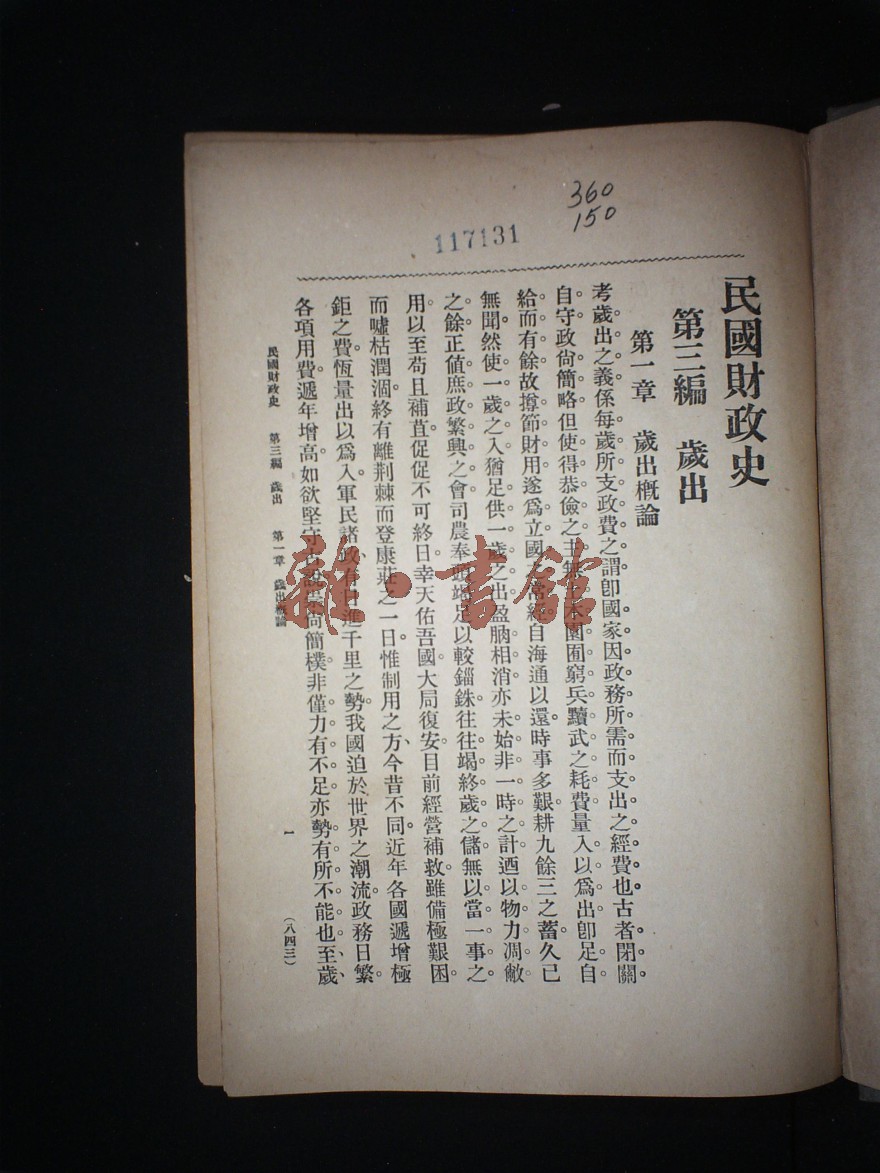 360
150
117131
民國財政史
第三編　歲出
第一章　歲出槪論
考歲出之義係每歲所支政費之謂卽國家因政務所需而支出之經費也古者閉關
自守政尙簡略但使得恭儉之主無木園囿窮兵黷武之耗費量入以爲出卽足自
給而有餘故撙節財用遂爲立國之常經自海通以還時事多艱耕九餘三之蓄久已
無聞然使一歲之入猶足供一歲之出盈朒相消亦未始非一時之計迺以物力凋敝
之餘正値庶政繁興之會司農奉頭竭足以較錙銖往往竭終歲之儲無以當一事之
用以至苟且補苴促促不可終日幸天佑吾國大局復安目前經營補救雖備極艱困
而噓枯潤涸終有離荆棘而登康莊之一日惟制用之方今昔不同近年各國遞增極
鉅之費恆量出以爲入軍民諸政有日進千里之勢我國迫於世界之潮流政務日繁
各項用費遞年增高如欲堅守尙簡樸非僅力有不足亦勢有所不能也至歲
民國財政史　第三編　歲出　第一章　歲出槪論
一
（八四三）
雜·書館